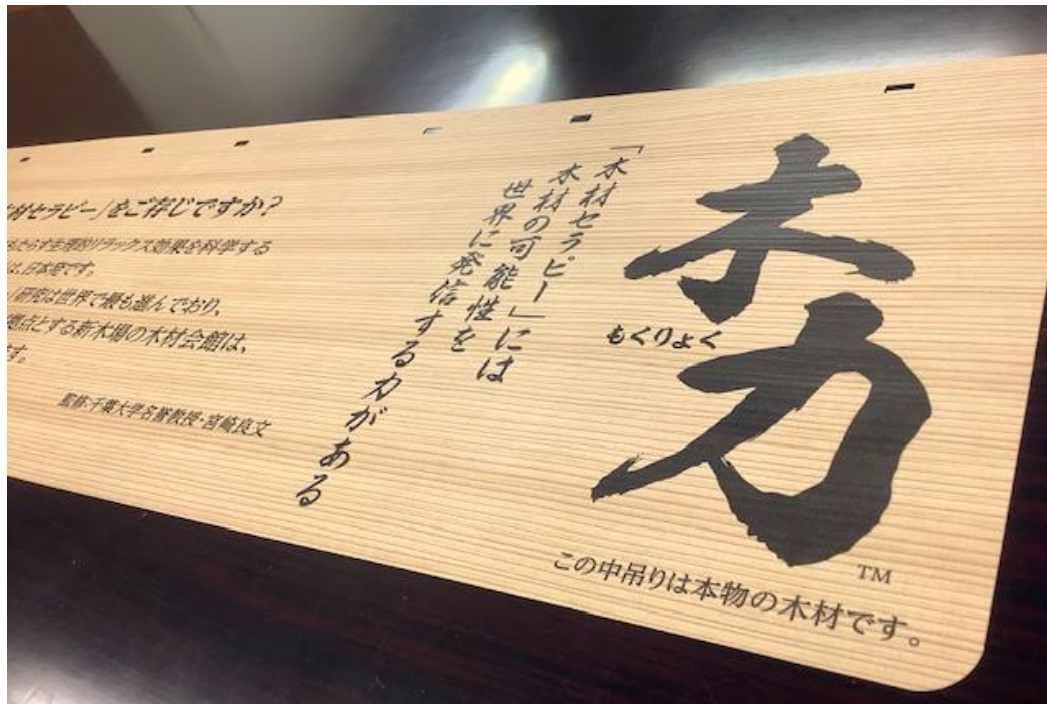 木力
もくりょく
TM
「木材セラピー」には
木材の可能性を
世界に発信する力がある
この中吊りは本物の木材です。
材セラピー」をご存じですか?
もたらす生理的リラックス効果を科学する
は、日本発です。
研究は世界で最も進んでおり、
拠点とする新木場の木材会館は、
です。
監修:千葉大学名誉教授・宮崎良文